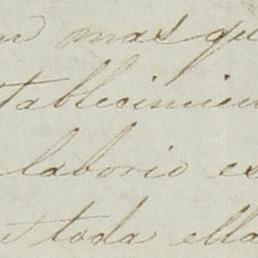 mas qu
tablecimien
laborio es
toda ella